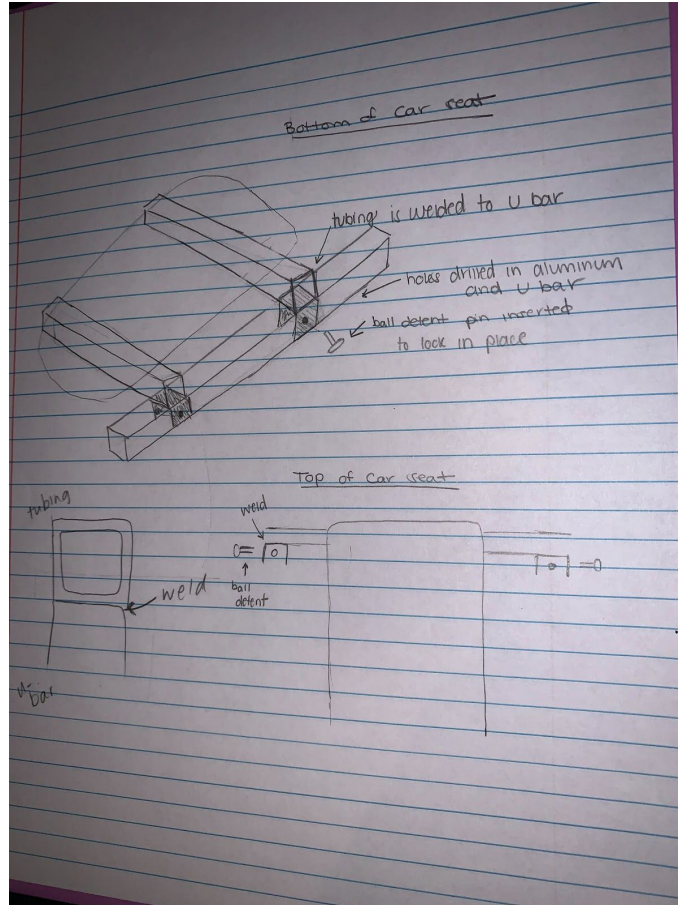 Bottom of car seat
tubing is welded to U bar
holes drilled in aluminum
and U bar
ball detent pin inserted
to lock in place
Top of car seat
tubing
weld
ball
detent
weld
u-bar